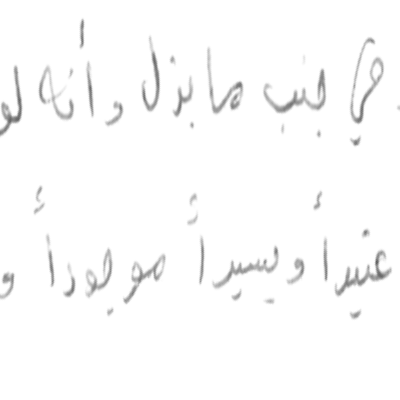 في جنب ما بذل وأنه لو
عتيداً ويسيراً موجوداً و